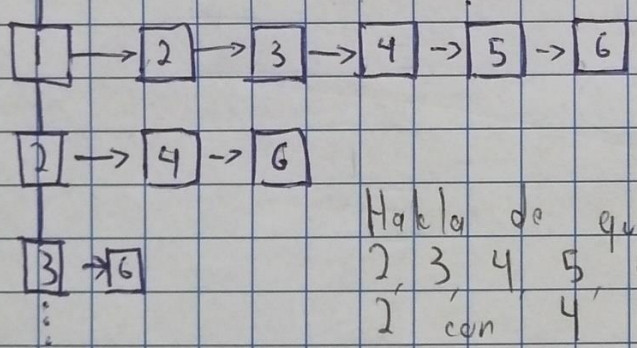 1 → 2 → 3 → 4 → 5 → 6
2 → 4 → 6
Habla de qu
3 → 6 2, 3, 4, 5,
2 con 4